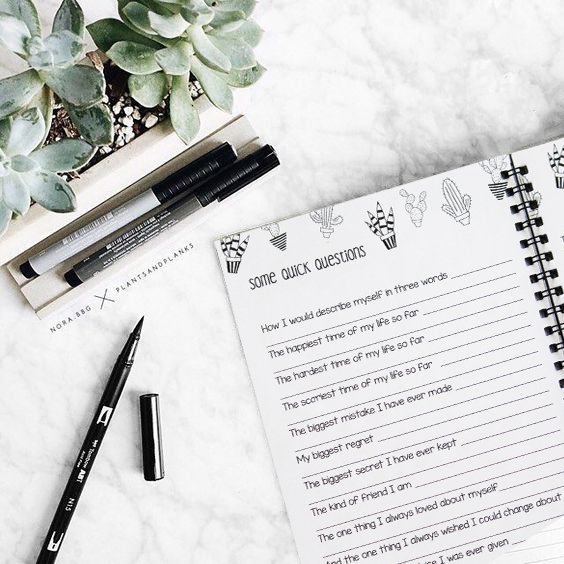 NORA.BBG X PLANTSANDPLANKS
Tombow ABT
N15
Some Quick Questions
How I would describe myself in three words
The happiest time of my life so far
The hardest time of my life so far
The scariest time of my life so far
The biggest mistake I have ever made
My biggest regret
The biggest secret I have ever kept
The kind of friend I am
The one thing I always loved about myself
And the one thing I always wished I could change about
I was ever given